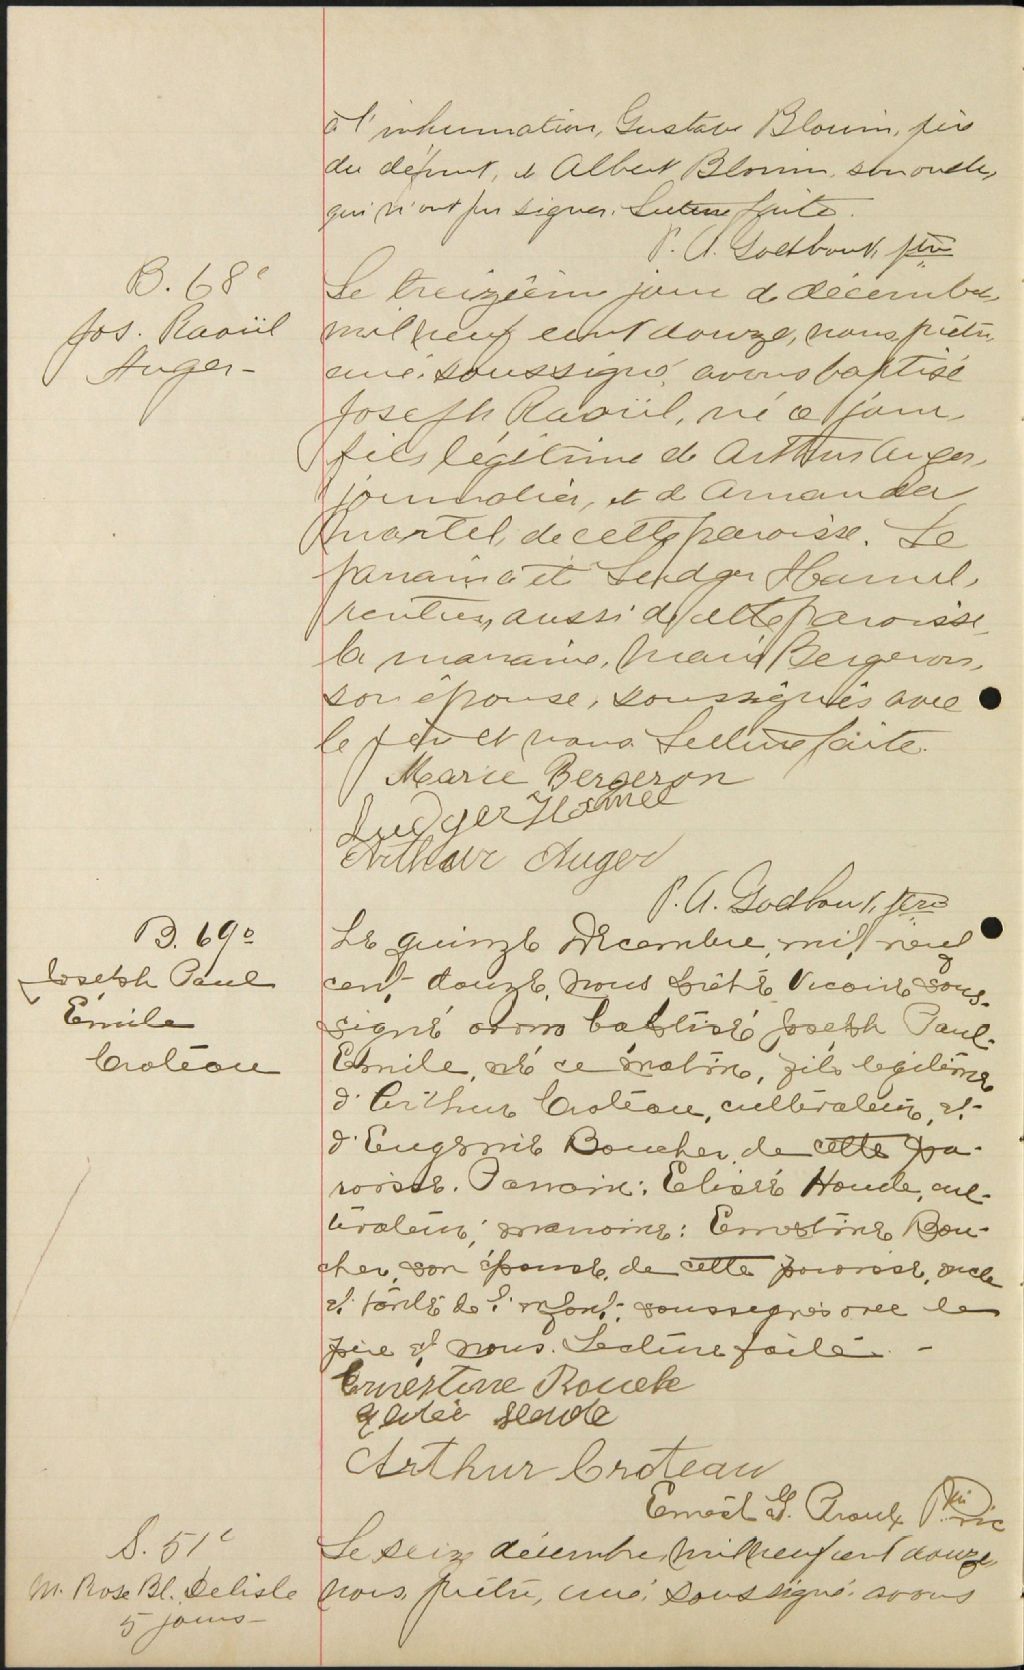 à l'inhumation, Gustave Blouin, père
du défunt, et Albert Blouin, son oncle,
qui n'ont pu signer. Lecture faite.
P. A. Godbout, ptre
B. 68e
Jos. Raoüil
Auger -
Le treizième jour de décembre
mil neuf cent douze, nous, prêtre,
curé, soussigné, avons baptisé
Joseph Raoüil, né ce jour,
fils légitime de Arthur Auger,
journalier, et de Amanda
Martel, de cette paroisse. Le
parrain a été Ludger Hamel,
rentier, aussi de cette paroisse,
la marraine, Marie Bergeron,
son épouse, soussignés avec
le père et nous. Lecture faite.
Marie Bergeron
Ludger Hamel
Arthur Auger
P. A. Godbout, ptre
B. 69e
Joseph Paul
Émile
Croteau
Le quinze Décembre, mil neuf
cent douze, nous prêtre Vicaire sous-
signé avons baptisé Joseph Paul-
Emile, né ce matin, fils légitime
d'Arthur Croteau, cultivateur, et
d'Eugénie Boucher, de cette pa-
roisse. Parrain: Elisée Houde, cul-
tivateur; marraine: Ernestine Bou-
cher, son épouse, de cette paroisse, oncle
et tante de l'enfant, soussignés avec le
père et nous. Lecture faite. -
Ernestine
Houde
Arthur Croteau
Ernest G. Proulx Ptre Vic
S. 51e
M. Rose Bl. Delisle
5 jours -
Le seize décembre, mil neuf cent douze,
nous, prêtre, curé, soussigné, avons